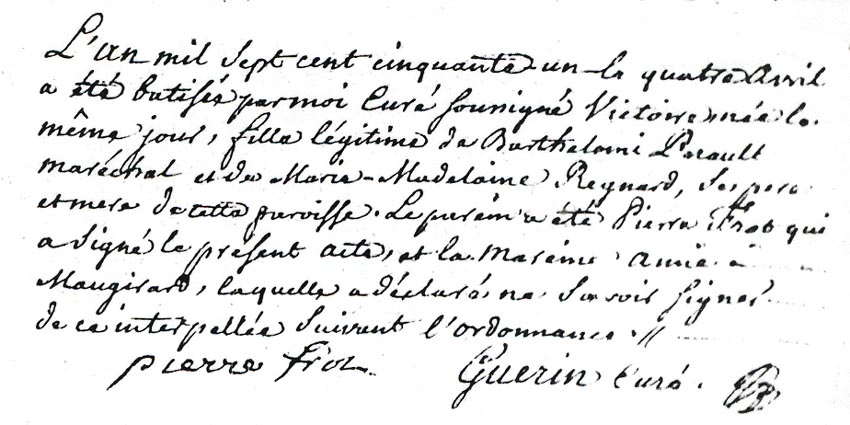 L'an mil sept cent cinquante-un le quatre avril
a été batisée par moi Curé sousigné Victoire née le
même jour, fille légitime de Barthelemi Perault
maréchal et de Marie-Madelaine Reynard, ses pere
et mere de cette paroisse. Le parein a été Pierre Frot qui
a signé le présent acte, et la mareine anne
Maugirard, laquelle a déclaré ne savoir signer
de ce interpellée suivant l'ordonnance.//
pierre frot Guerin Curé.